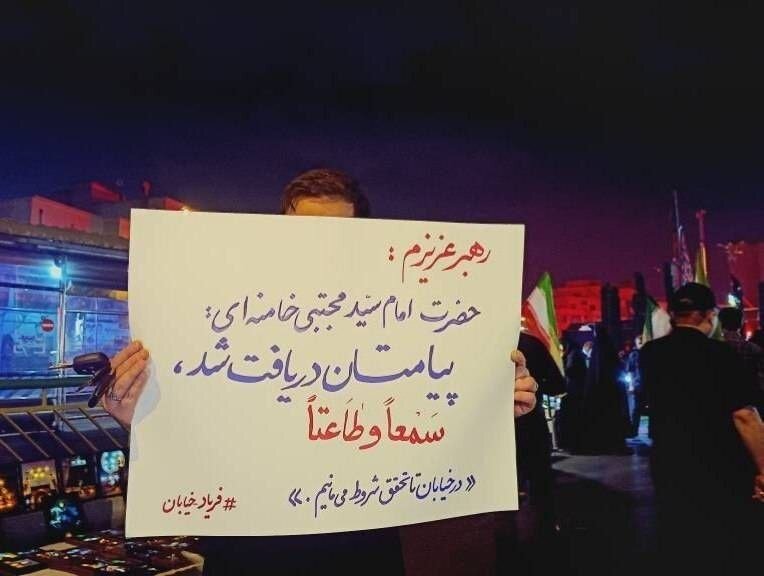 رهبر عزیزم :
حضرت امام سیّد مجتبی خامنه‌ای :
پیامتان دریافت شد،
سَمعاً و طاعَتاً
«در خیابان تا تحقق شروط می‌مانیم.»
#فریاد_خیابان